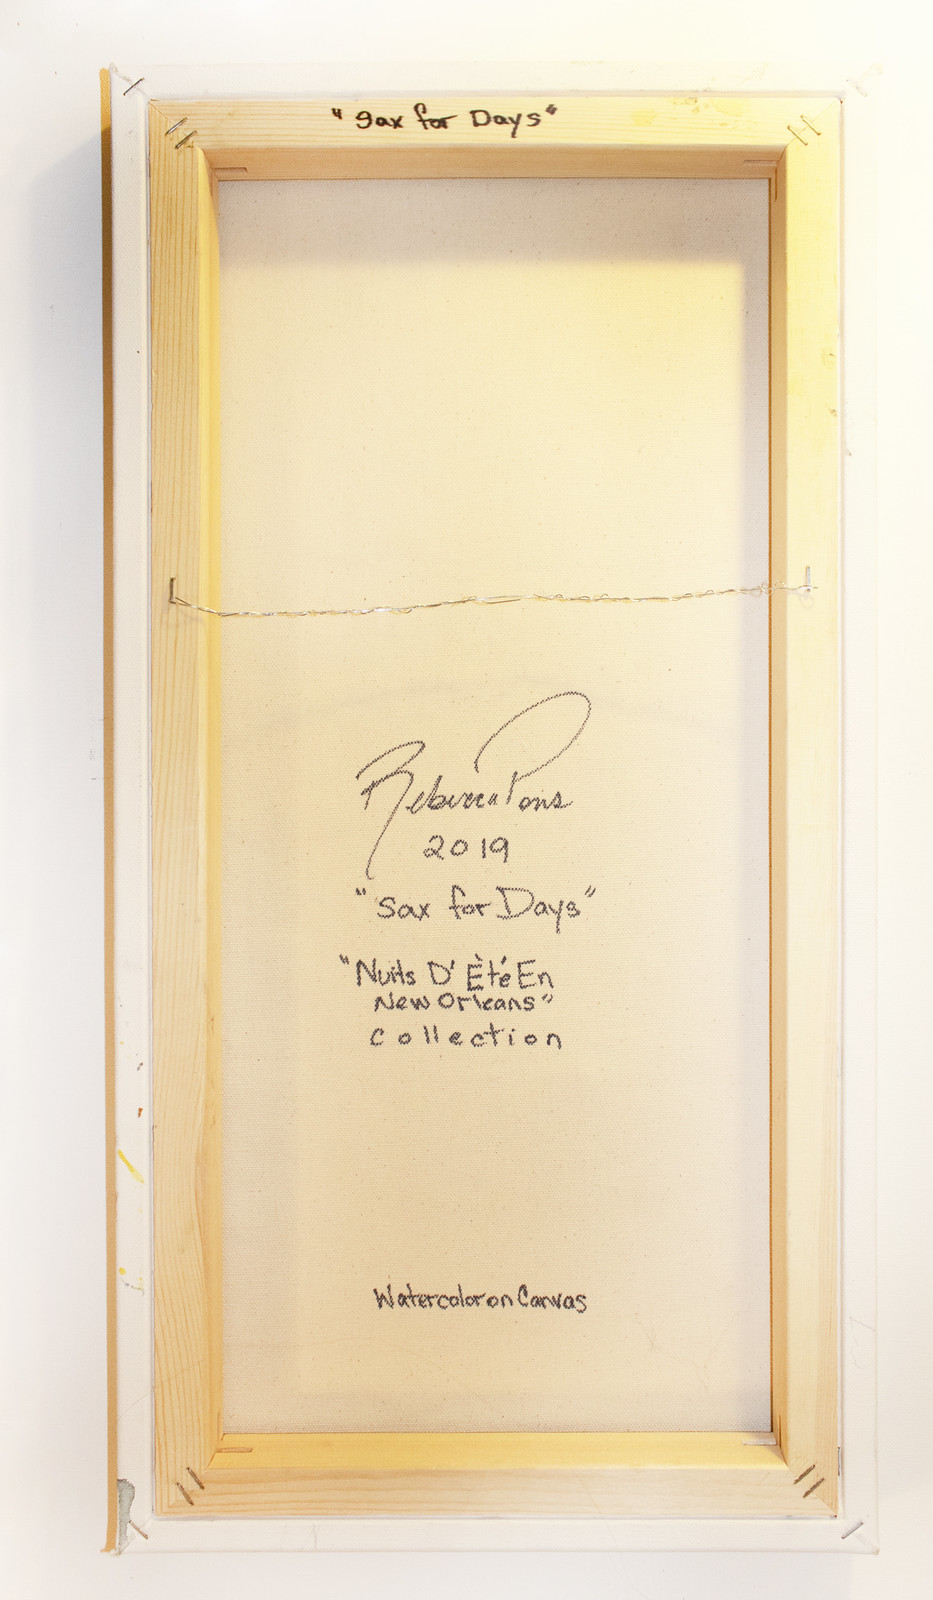 "Sax for Days"
Rebecca Pons
2019
"Sax for Days"
"Nuits D' Èté En
New Orleans"
Collection
Watercolor on Canvas